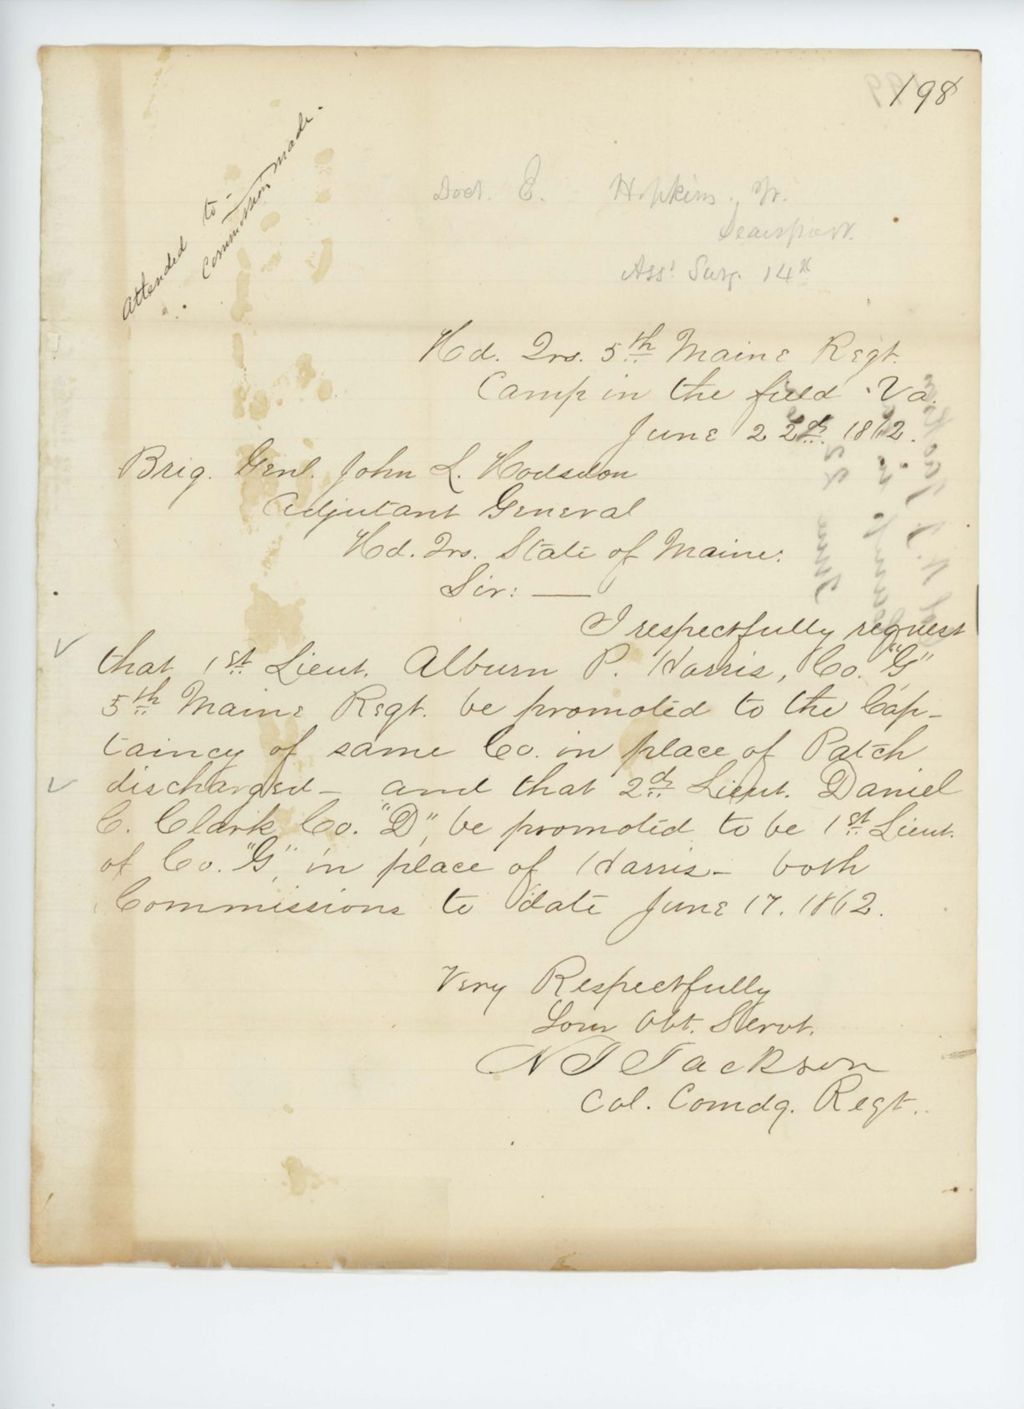 198
Attended to -
Commission made -
Doct. E. Hopkins, Jr.
Searsport.
Asst Surg. 14th
Hd. Qrs. 5th Maine Regt.
Camp in the field Va.
June 22nd. 1862.
Brig. Genl. John L. Hodsdon
Adjutant General
Hd. Qrs. State of Maine:
Sir: —
I respectfully request
that 1st. Lieut. Alburn P. Harris, Co. "G"
5th Maine Regt. be promoted to the Cap-
taincy of same Co. in place of Patch
discharged - and that 2nd Lieut. Daniel
C. Clark Co. "D", be promoted to be 1st Lieut.
of Co. "G", in place of Harris - both
Commissions to date June 17. 1862.
Very Respectfully
Your Obt. Servt.
N J Jackson
Col. Comdg. Regt.